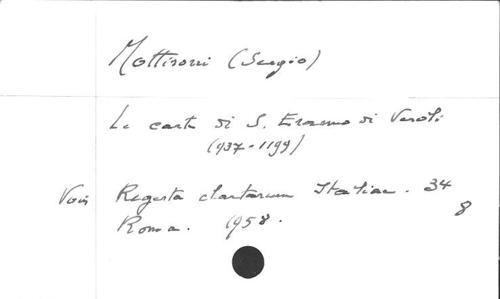 Mottironi (Sergio)
Le carte di S. Erasmo di Veroli
(937-1199)
Voir Regesta chartarum Italiae. 34
8
Roma. 1958.